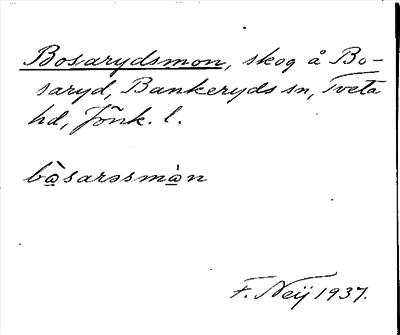 Bosarydsmon, skog å Bo-
saryd, Bankeryds sn, Tveta
hd, Jönk. l.
bòsarəsmòn
F. Neij 1937.